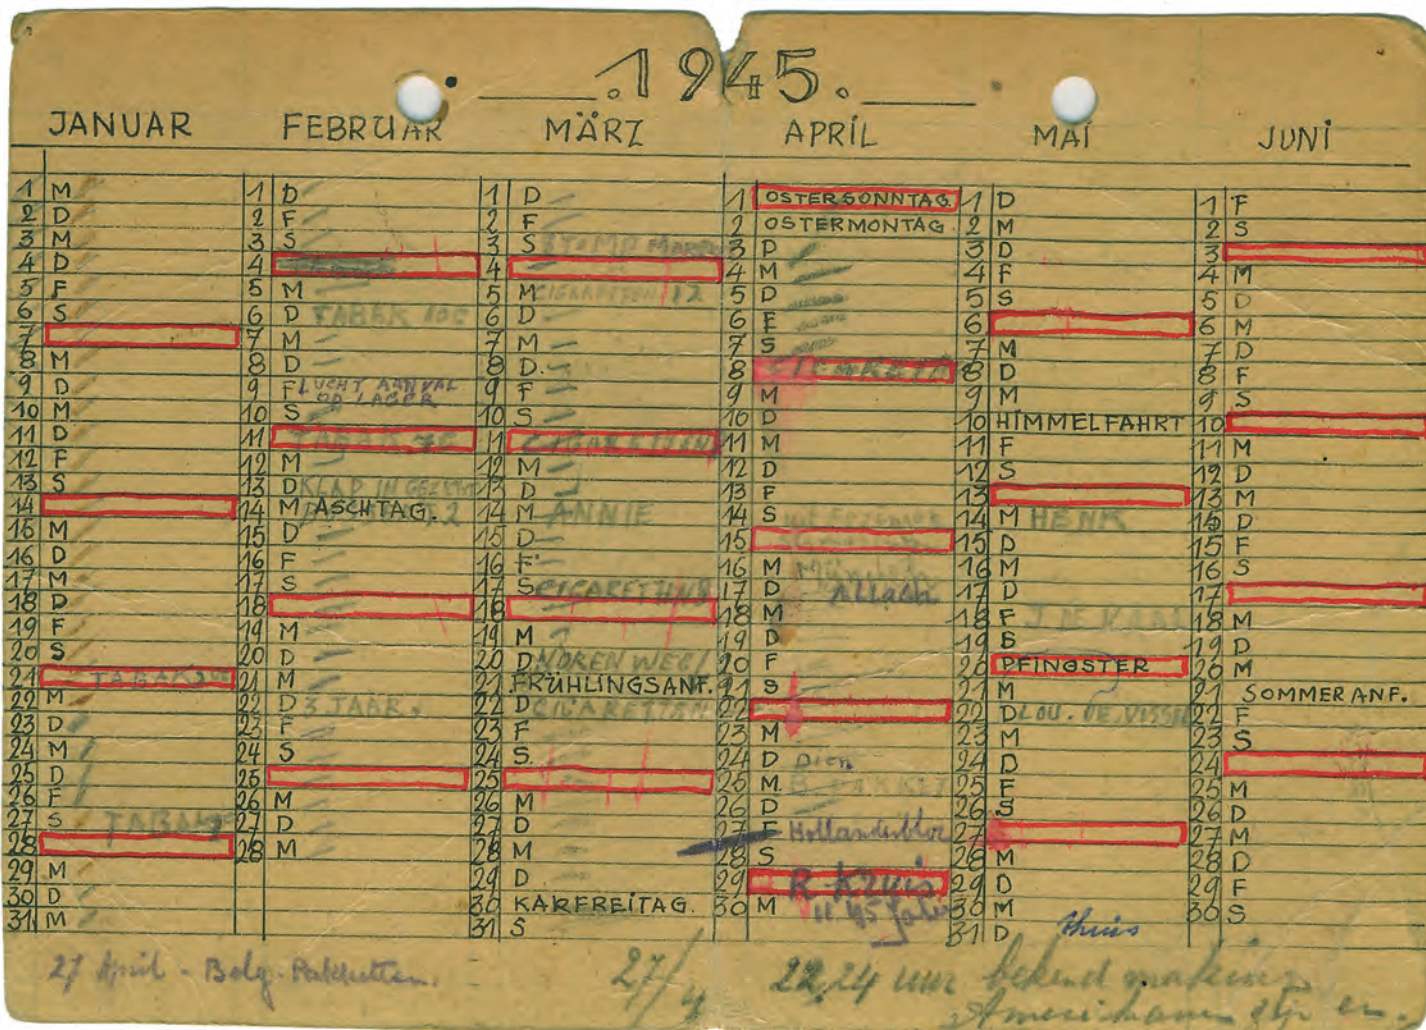 .1945.
JANUAR
1 M
2 D
3 M
4 D
5 F
6 S
7
8 M
9 D
10 M
11 D
12 F
13 S
14
15 M
16 D
17 M
18 D
19 F
20 S
21 TABAK
22 M
23 D
24 M
25 D
26 F
27 S TABAK
28
29 M
30 D
31 M
FEBRUAR
1 D
2 F
3 S
4
5 M
6 D TABAK 10C
7 M
8 D
9 F LUCHT AANVAL
OP LAGER
10 S
11 TABAK 7C
12 M
13 D KLAP IN
14 M ASCHTAG
15 D
16 F
17 S
18
19 M
20 D
21 M
22 D 3 JAAR.
23 F
24 S
25
26 M
27 D
28 M
MÄRZ
1 D
2 F
3 S
4
5 M CIGARETTEN 12
6 D
7 M
8 D.
9 F
10 S
11 CIGARETTEN
12 M
13 D
14 M ANNIE
15 D
16 F
17 S
18
19 M
20 D NOREN WEG
21 FRÜHLINGSANF.
22 D CIGARETTEN
23 F
24 S.
25
26 M
27 D
28 M
29 D
30 KARFREITAG.
31 S
APRIL
1 OSTERSONNTAG.
2 OSTERMONTAG
3 D
4 M
5 D
6 F
7 S
8
9 M
10 D
11 M
12 D
13 F
14 S
15
16 M München
17 D Allach
18 M
19 D
20 F
21 S
22
23 M
24 D Dien
25 M. B PAKKET
26 D
27 F Hollanderbloc
28 S
29 R-Kruis
30 M 11 45
MAI
1 D
2 M
3 D
4 F
5 S
6
7 M
8 D
9 M
10 HIMMELFAHRT
11 F
12 S
13
14 M HENK
15 D
16 M
17 D
18 F J DE
19 S
20 PFINGSTER
21 M
22 D LOU. DE VISSER
23 M
24 D
25 F
26 S
27
28 M
29 D
30 M
31 D thuis
JUNI
1 F
2 S
3
4 M
5 D
6 M
7 D
8 F
9 S
10
11 M
12 D
13 M
14 D
15 F
16 S
17
18 M
19 D
20 M
21 SOMMERANF.
22 F
23 S
24
25 M
26 D
27 M
28 D
29 F
30 S
27 April - Belg. Pakketten.
27/4 22,24 uur bekend making
Amerikanen zijn er.